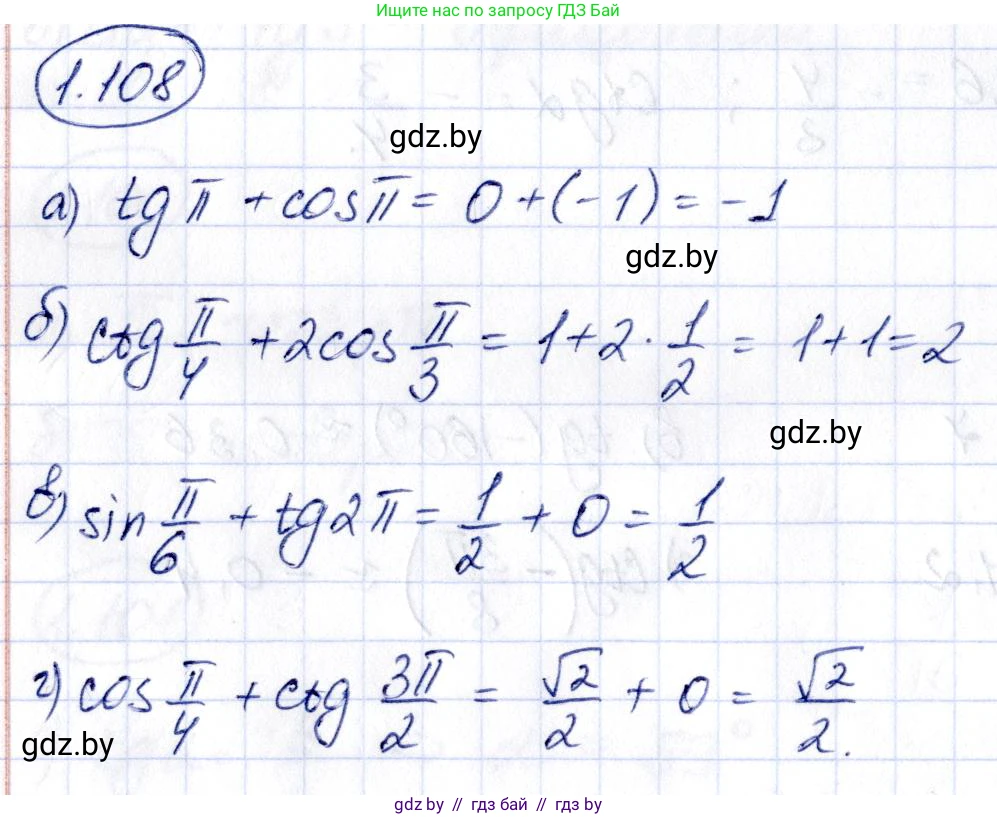 Ищите нас по запросу ГДЗ Бай
1.108
gdz.by
а) tg π + cos π = 0 + (-1) = -1
gdz.by
б) ctg π/4 + 2cos π/3 = 1 + 2 · 1/2 = 1 + 1 = 2
gdz.by
в) sin π/6 + tg 2π = 1/2 + 0 = 1/2
г) cos π/4 + ctg 3π/2 = √2/2 + 0 = √2/2.
gdz.by
gdz by // гдз бай // гдз by